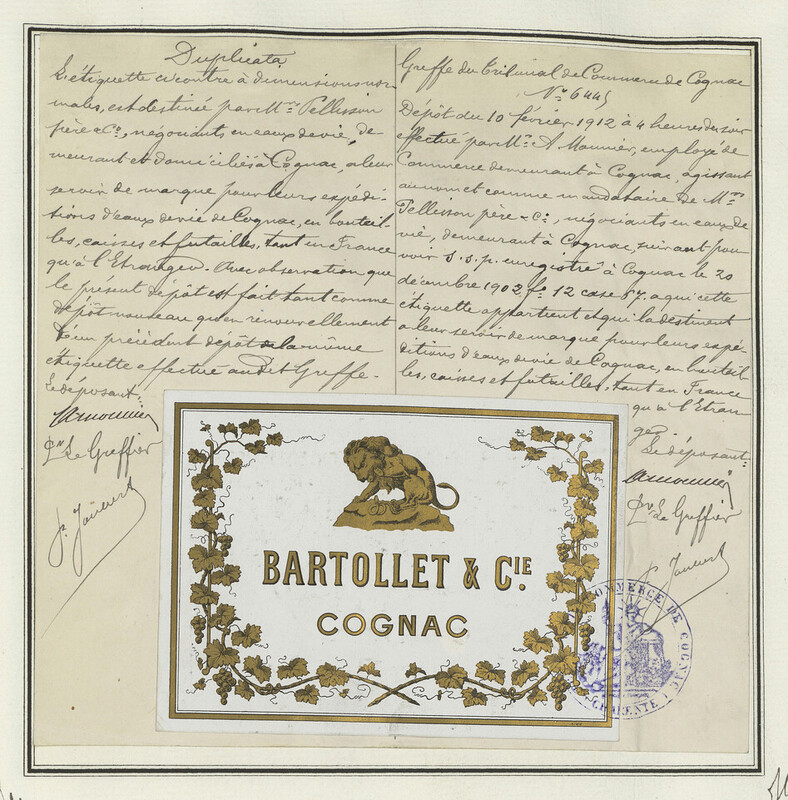 Duplicata
L'étiquette ci-contre à dimensions nor-
males, est destinée par Mrs Pellisson
père & Co, négociants en eaux de vie, de-
meurant et domiciliés à Cognac, à leur
servir de marque pour leurs expédi-
tions d'eaux de vie de Cognac, en bouteil-
les, caisses et futailles, tant en France
qu'à l'Etranger. Avec observation que
le présent dépôt est fait tant comme
dépôt nouveau qu'en renouvellement
d'un précédent dépôt de la même
étiquette effectué au dit Greffe.
Le déposant,
AMounier
Le Greffier
Greffe du Tribunal de Commerce de Cognac
No 6445
Dépôt du 10 février 1912 à 4 heures du soir
effectué par Mr A. Mounier, employé de
Commerce demeurant à Cognac, agissant
au nom et comme mandataire de Mrs
Pellisson père & Co, négociants en eaux de
vie, demeurant à Cognac, suivant pou-
voir s.s.p. enregistré à Cognac le 20
décembre 1902 fo 12 case 57, à qui cette
étiquette appartient et qui la destinent
à leur servir de marque pour leurs expé-
ditions d'eaux de vie de Cognac, en bouteil-
les, caisses et futailles, tant en France
qu'à l'Etran-
ger
Le déposant:
AMounier
Le Greffier
BARTOLLET & CIE.
COGNAC
COMMERCE DE COGNAC
CHARENTE